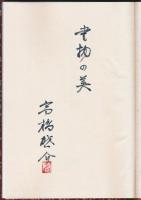 書物の美
高橋啓介